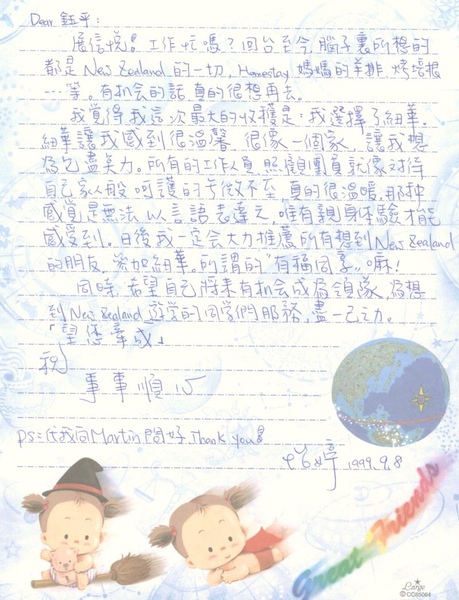 Dear 鈺乎:
展信悅! 工作忙嗎? 回台至今,腦子裏所想的
都是New Zealand的一切, Homestay媽媽的羊排、烤培根
…等。有机会的話真的很想再去。
我覺得我這次最大的收獲是:我選擇了紐華.
紐華讓我感到很溫馨,很像一個家,讓我想
為它盡矣力。所有的工作人員,照顧團員就像对待
自己家人般 呵護的无微不至,真的很溫暖,那种
感覺是無法以言語表達之,唯有親身体驗才能
感受到。日後我一定会大力推薦所有想到New Zealand
的朋友,參加紐華。所謂的"有福同享"嘛!
同時,希望自己將來有机会成為領隊,為想
到New Zealand遊学的同学們服務,盡一己之力。
「望您幸成」
祝
事事順心
ps: 代我向Martin問好. Thank you!
婷 1999.9.8
Great Friends
Largo
© CC85064